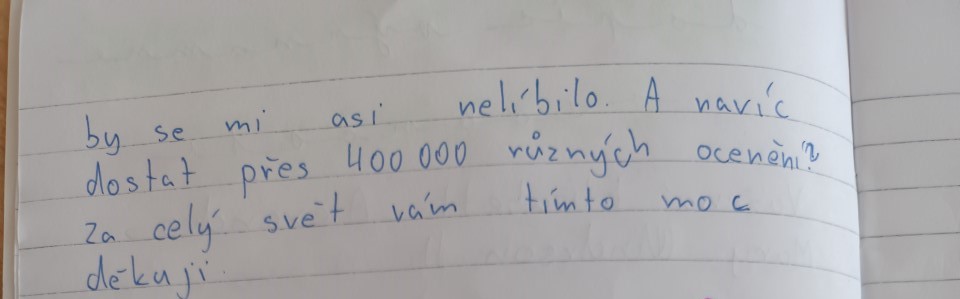 by se mi asi nelíbilo. A navíc
dostat přes 400 000 různých ocenění?
Za celý svět vám tímto moc
děkuji.